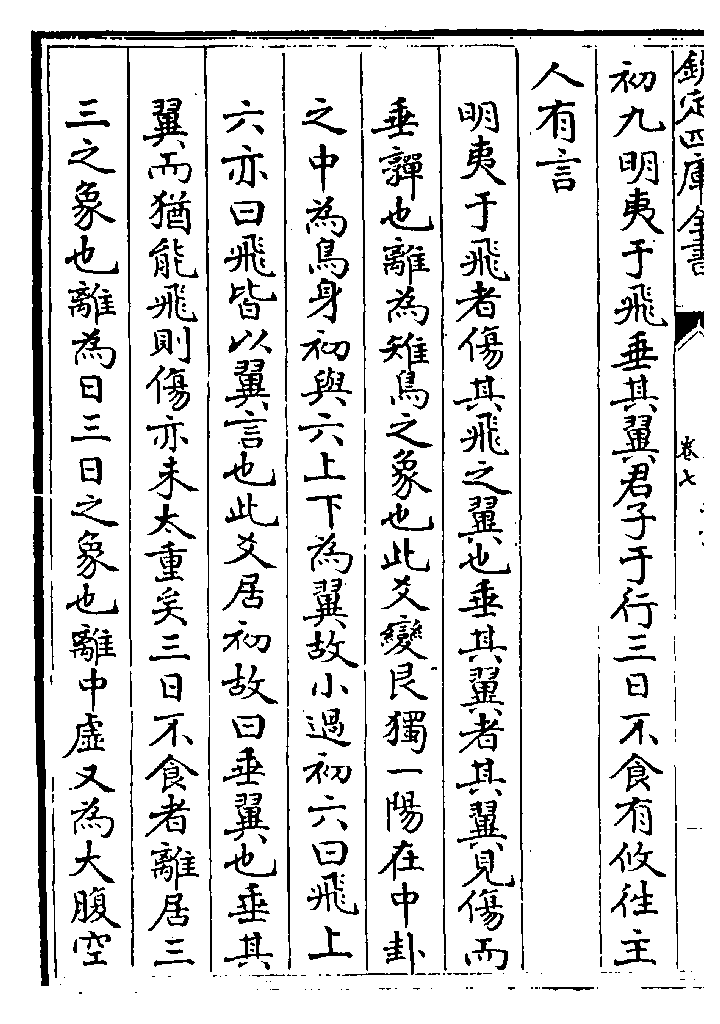 欽定四庫全書
卷七
初九明夷于飛垂其翼君子于行三日不食有攸徃主
人有言
明夷于飛者傷其飛之翼也垂其翼者其翼見傷而
垂嚲也離為雉鳥之象也此爻變艮獨一陽在中卦
之中為鳥身初與六上下為翼故小過初六曰飛上
六亦曰飛皆以翼言也此爻居初故曰垂翼也垂其
翼而猶能飛則傷亦未太重矣三日不食者離居三
三之象也離為日三日之象也離中虛又為大腹空